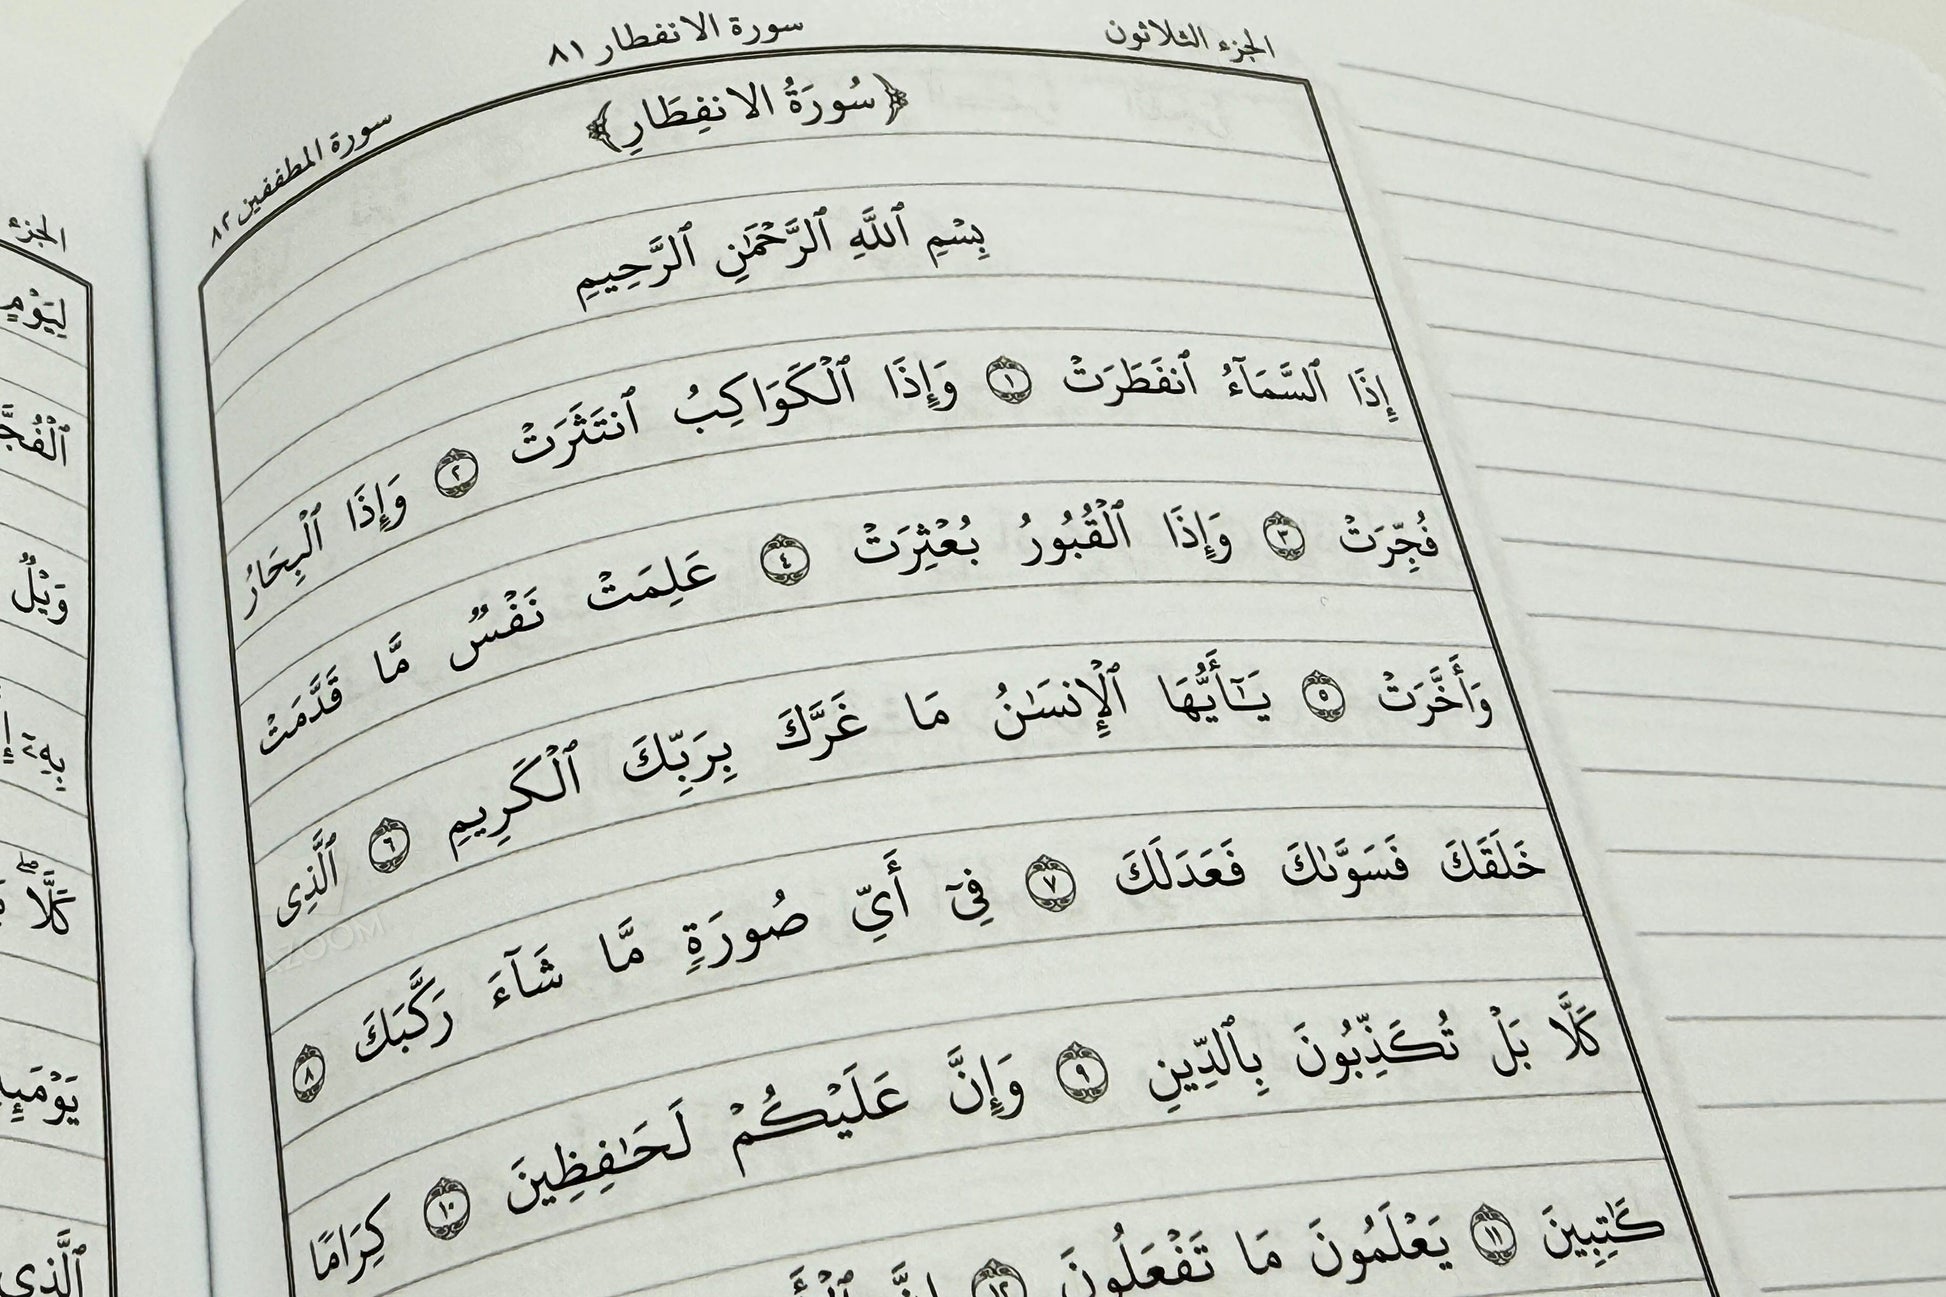 الجزء الثلاثون
سورة الانفطار ٨١
سورة المطففين ٨٢
﴿سُورَةُ الانفِطَارِ﴾
بِسْمِ ٱللَّهِ ٱلرَّحْمَٰنِ ٱلرَّحِيمِ
إِذَا ٱلسَّمَآءُ ٱنفَطَرَتْ ١ وَإِذَا ٱلْكَوَاكِبُ ٱنتَثَرَتْ ٢ وَإِذَا ٱلْبِحَارُ
فُجِّرَتْ ٣ وَإِذَا ٱلْقُبُورُ بُعْثِرَتْ ٤ عَلِمَتْ نَفْسٌ مَّا قَدَّمَتْ
وَأَخَّرَتْ ٥ يَـٰٓأَيُّهَا ٱلْإِنسَـٰنُ مَا غَرَّكَ بِرَبِّكَ ٱلْكَرِيمِ ٦ ٱلَّذِى
خَلَقَكَ فَسَوَّىٰكَ فَعَدَلَكَ ٧ فِىٓ أَىِّ صُورَةٍ مَّا شَآءَ رَكَّبَكَ ٨
كَلَّا بَلْ تُكَذِّبُونَ بِٱلدِّينِ ٩ وَإِنَّ عَلَيْكُمْ لَحَـٰفِظِينَ ١٠ كِرَامًا
كَـٰتِبِينَ ١١ يَعْلَمُونَ مَا تَفْعَلُونَ ١٢ إِنَّ
الجزء
لِيَوْمٍ
وَيْلٌ
بِهِۦٓ
كَلَّا ۖ
يَوْمَئِذٍ
ٱلَّذِى
ZOOM